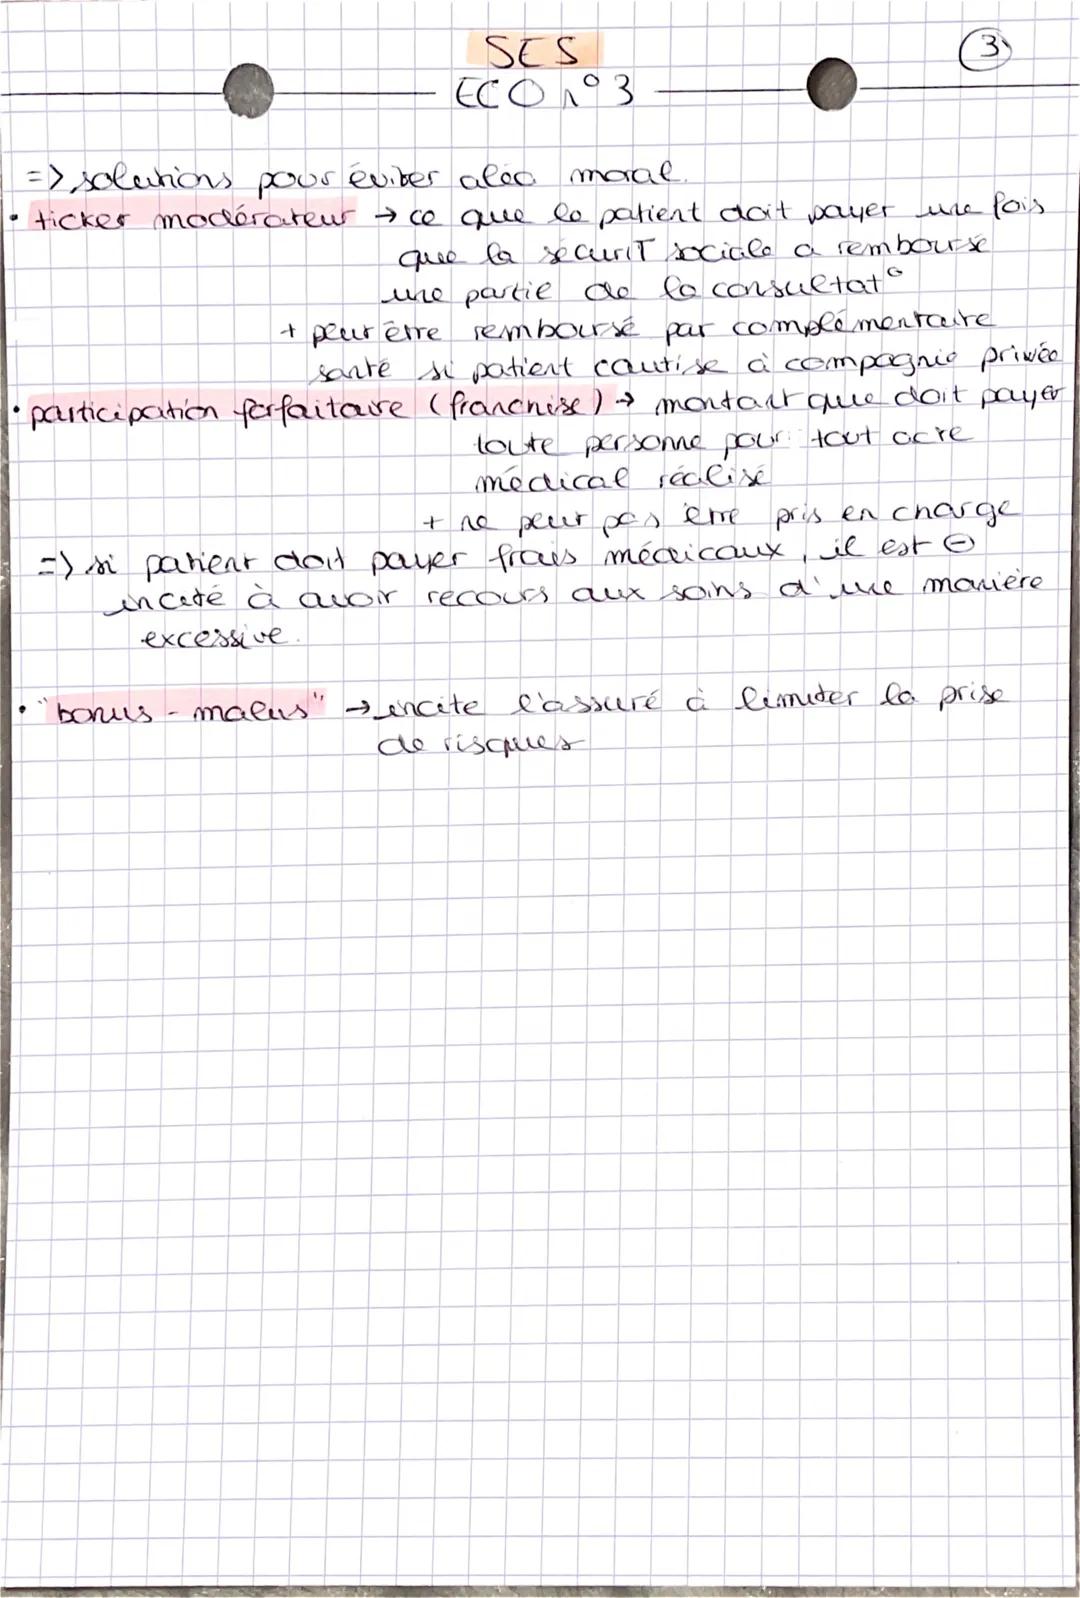 SES
3
ECO n°3
=> solutions pour éviter aléa moral.
• ticket modérateur → ce que le patient doit payer une fois
que la sécuriT sociale a remboursé
une partie de la consultat°
+ peut être remboursé par complémentaire
santé si patient cautise à compagnie privée
• participation forfaitaire (franchise) → montant que doit payer
toute personne pour tout acte
médical réalisé
+ ne peut pas être pris en charge
=> si patient doit payer frais médicaux, il est ⊖
incité à avoir recours aux soins d'une manière
excessive.
• "bonus - malus" → incite l'assuré à limiter la prise
de risques